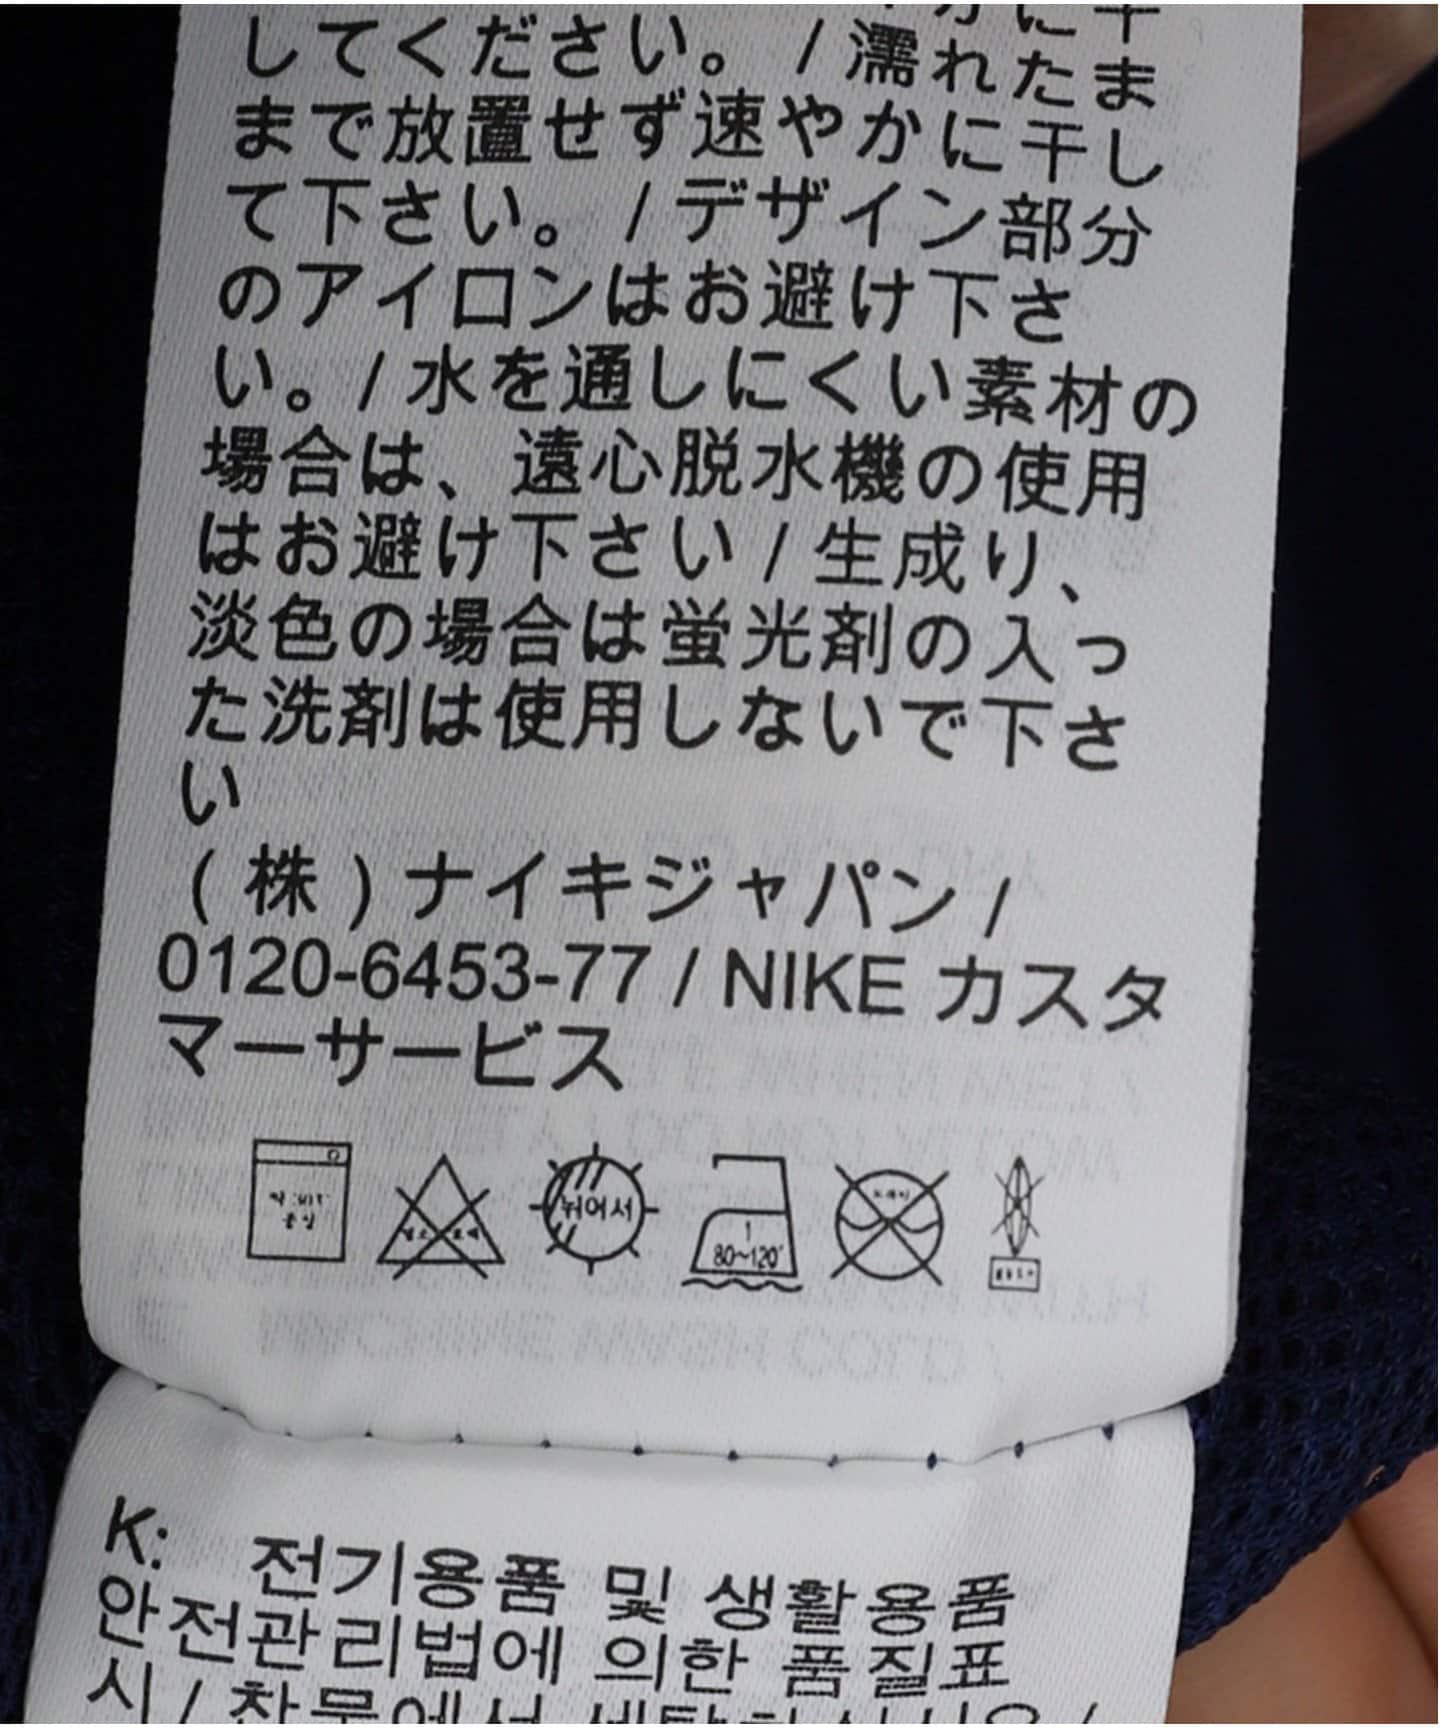 してください。 / 濡れたま
まで放置せず速やかに干し
て下さい。 / デザイン部分
のアイロンはお避け下さ
い。/ 水を通しにくい素材の
場合は、遠心脱水機の使用
はお避け下さい / 生成り、
淡色の場合は蛍光剤の入っ
た洗剤は使用しないで下さ
い
( 株 ) ナイキジャパン /
0120-6453-77 / NIKE カスタ
マーサービス
뉘어서
1
80~120°
K: 전기용품 및 생활용품
안전관리법에 의한 품질표
시 / 찬물에서